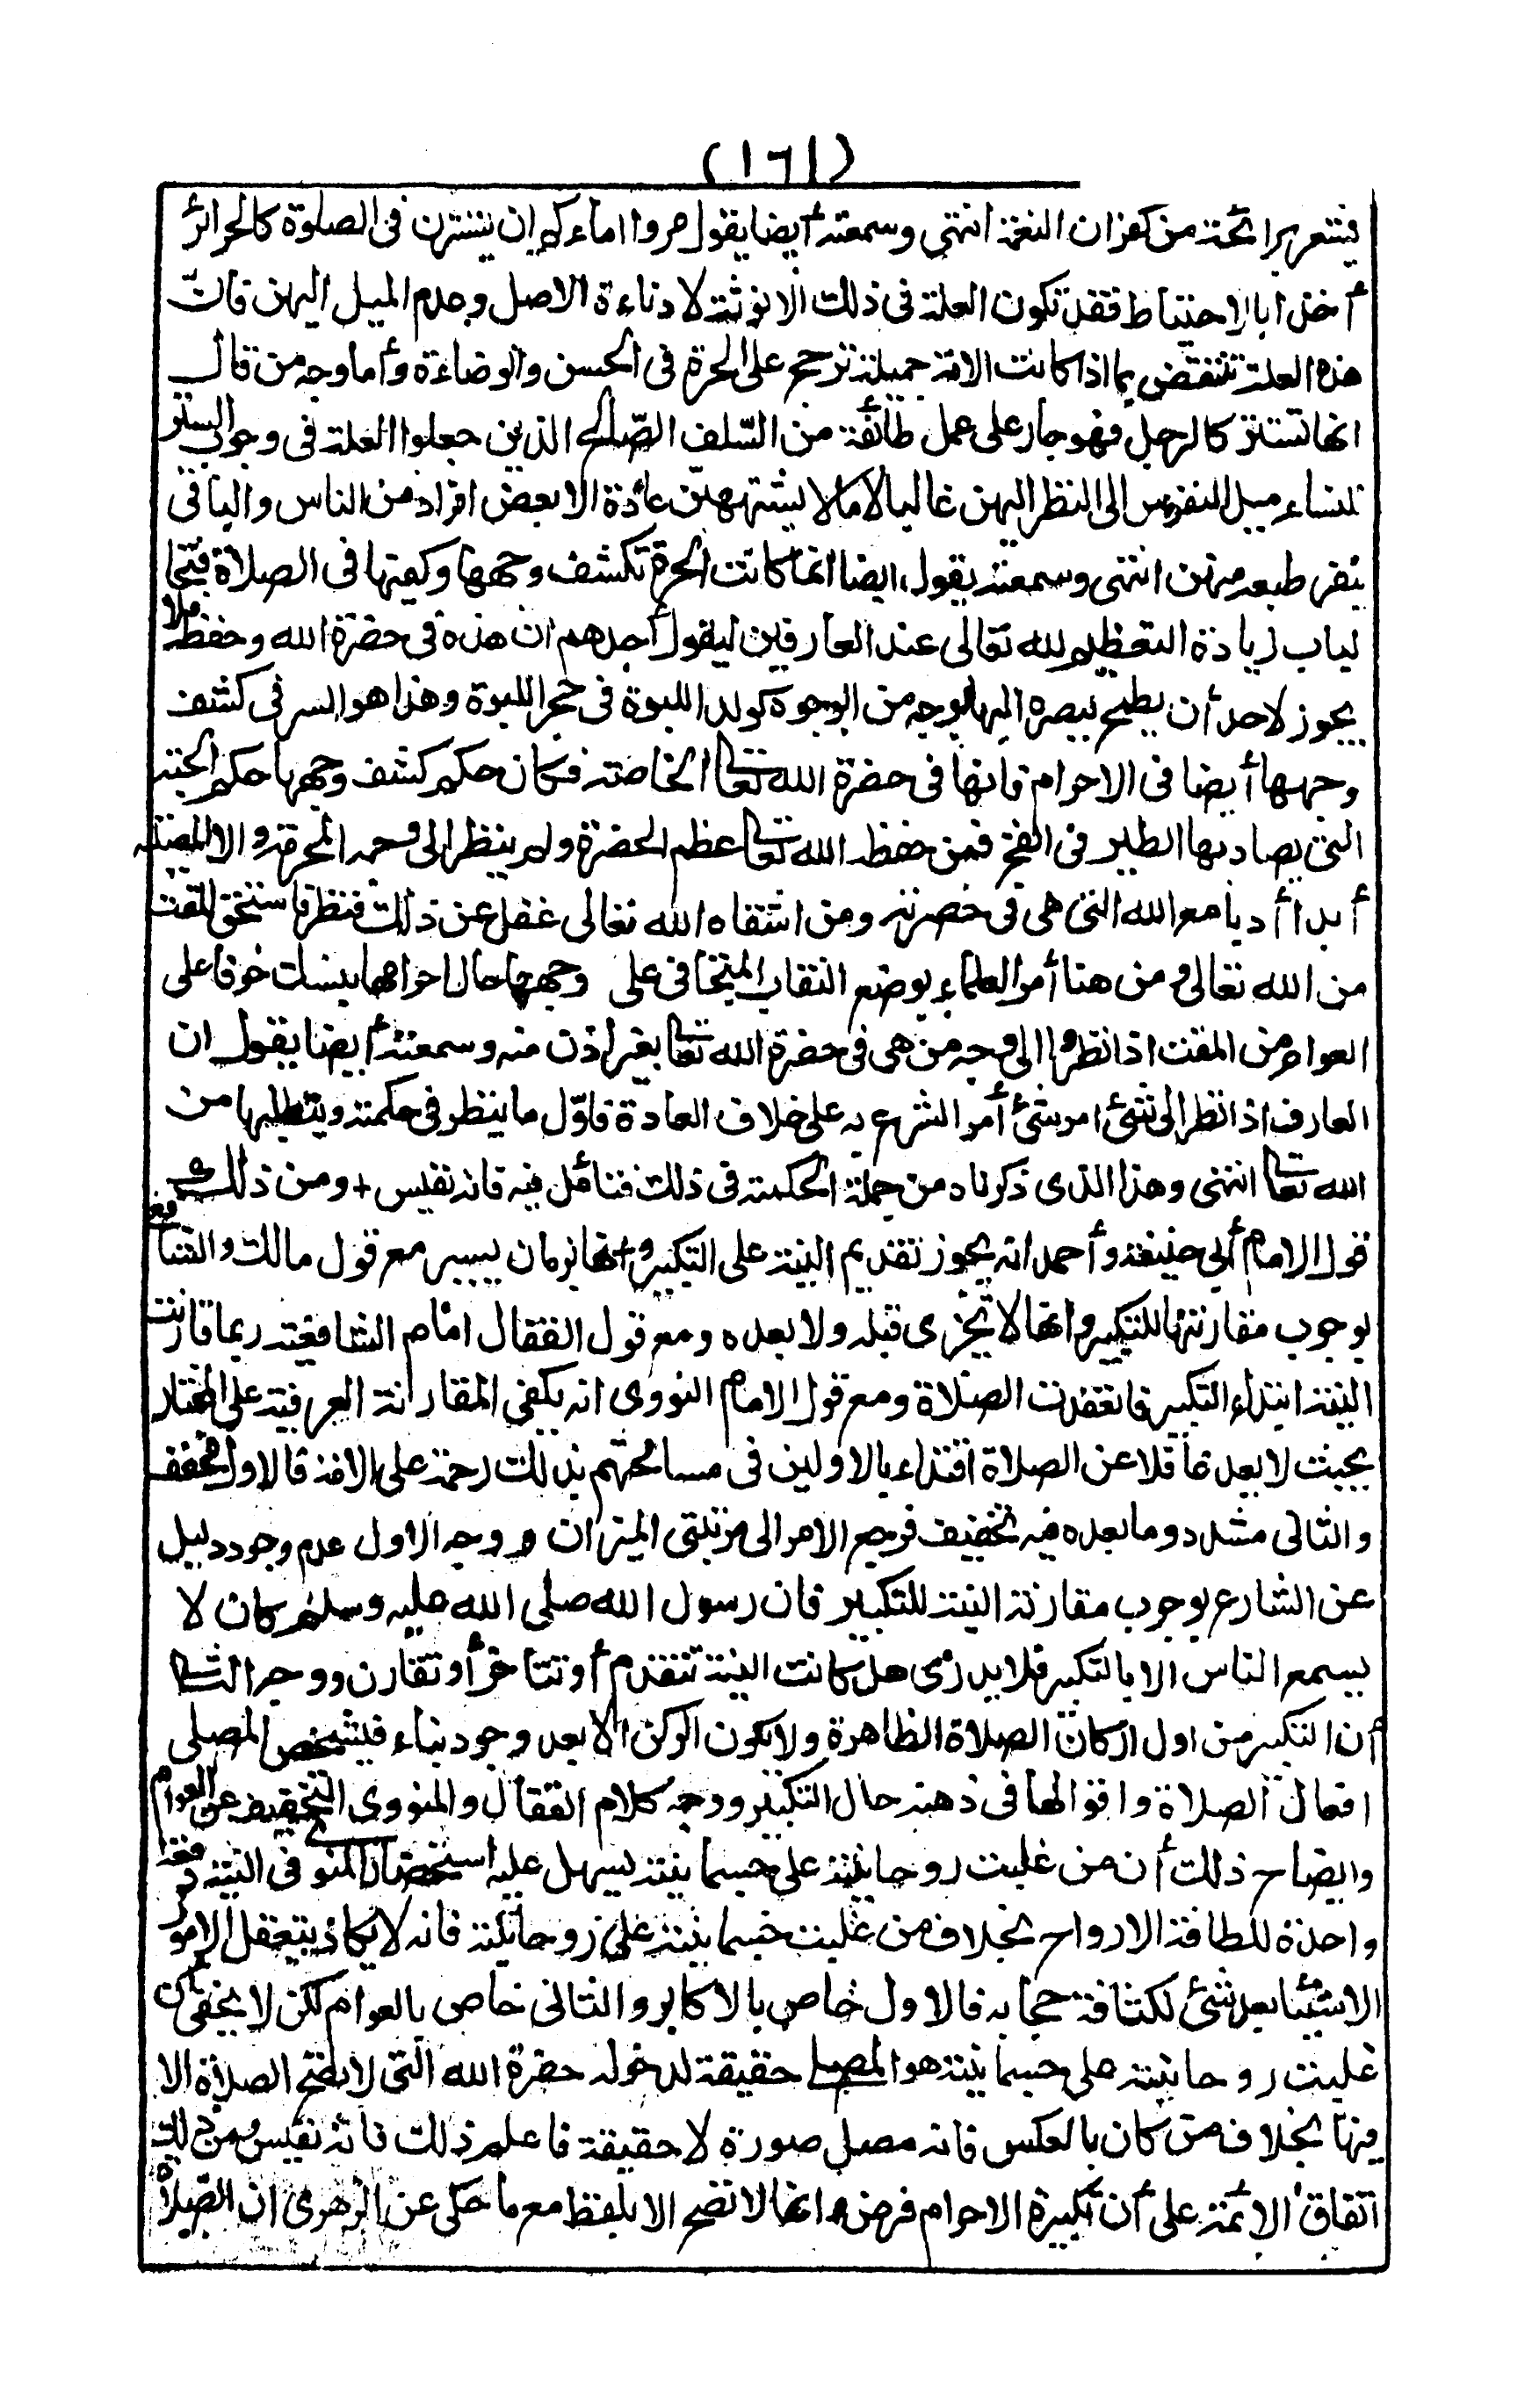 (١٦١)
فيشعر برائحة من كفران النعمة انتهى وسمعته أيضا يقول مروا اماءكم ان يستترن في الصلوة كالحرائر
أخذا بالاحتياط فقد تكون العلة في ذلك الانوثة لا دناءة الاصل وعدم الميل اليهن فان
هذه العلة تنتقض بما اذا كانت الامة جميلة ترجح على الحرة في الحسن والوضاءة وأما وجه من قال
انها تستتر كالرجل فهو جار على عمل طائفة من السّلف الصّالح الذين جعلوا العلة في وجوب الستر
للنساء ميل النفوس الى النظر اليهن غالبا لا ما لا يشتهيهنّ عادة الا بعض افراد من الناس والباقي
ينفر طبعه منهن انتهى وسمعته يقول ايضا انما كانت الحرة تكشف وجهها وكفيها في الصلاة فتحا
لباب زيادة التعظيم لله تعالى عند العارفين ليقول أحدهم ان هذه في حضرة الله وحفظه فلا
يجوز لاحد أن يطمح ببصره اليها بوجه من الوجوه كولد اللبوة في حجر اللبوة وهذا هو السر في كشف
وجهها أيضا في الاحرام فانها في حضرة الله تعالى الخاصة فكان حكم كشف وجهها حكم الحبة
التي يصاد بها الطير في الفخ فمن حفظه الله تعالى عظم الحضرة ولم ينظر الى وجه المحرمة والا المصلية
أبدا أدبا مع الله التي هي في حضرته ومن اشقاه الله تعالى غفل عن ذلك فنظر فاستحق المقت
من الله تعالى ومن هنا أمر العلماء بوضع النقاب المتجافي على وجهها حال احرامها بينات خوفا على
العوام من المقت اذا نظروا الى وجه من هي في حضرة الله تعالى بغير اذن منه وسمعته أيضا يقول ان
العارف اذا نظر الى شئ امر بشئ أمر الشرع به على خلاف العادة فاوّل ما ينظر في حكمته ويتطلبها من
الله تعالى انتهى وهذا الذى ذكرناه من جملة الحكمة في ذلك فتامّل فيه فانه نفيس + ومن ذلك
قول الامام أبي حنيفة وأحمد انه يجوز تقديم النية على التكبير وانها بزمان يسير مع قول مالك والشافعي
بوجوب مقارنتها للتكبير وانها لا تجزى قبله ولا بعده ومع قول القفال امام الشافعية ربما قارنت
النية ابتداء التكبير فانعقدت الصّلاة ومع قول الامام النووى انه يكفي المقارنة العرفية على المختار
بحيث لا يعد غافلا عن الصلاة اقتداء بالاولين في مسامحتهم بذلك رحمة على الامة فالاول مخفف
والثاني مشدد وما بعده فيه تخفيف فرجع الامر الى مرتبتي الميزان ووجه الاول عدم وجود دليل
عن الشارع بوجوب مقارنة النية للتكبير فان رسول الله صلى الله عليه وسلم كان لا
يسمع الناس الا بالتكبير فلا يدرى هل كانت النية تتقدم أو تتاخر أو تقارن ووجه الثاني
أن التكبير من اول اركان الصلاة الظاهرة ولا يكون الركن الا بعد وجود بناء فيشخص المصلى
افعال الصلاة واقوالها في ذهنه حال التكبير ووجه كلام القفال والنووى التخفيف عن العوام
وايضاح ذلك أن من غلبت روحانيته على جسمانيته يسهل عليه استحضار المنوى في النية دفعة
واحدة للطافة الارواح بخلاف من غلبت جسمانيته على روحانيته فانه لا يكاد يتعقل الامور
الا شيئا بعد شئ لكثافة حجابه فالاول خاص بالاكابر والثاني خاص بالعوام لكن لا يخفى أن من
غلبت روحانيته على جسمانيته هو المصلى حقيقة لدخوله حضرة الله التي لا تصح الصلاة الا
فيها بخلاف من كان بالعكس فانه مصل صورة لا حقيقة فاعلم ذلك فانه نفيس ومن ذلك
اتفاق الائمة على أن تكبيرة الاحرام فرض وانها لا تصح الا بلفظ مع ما حكى عن الزهرى ان الصّلاة